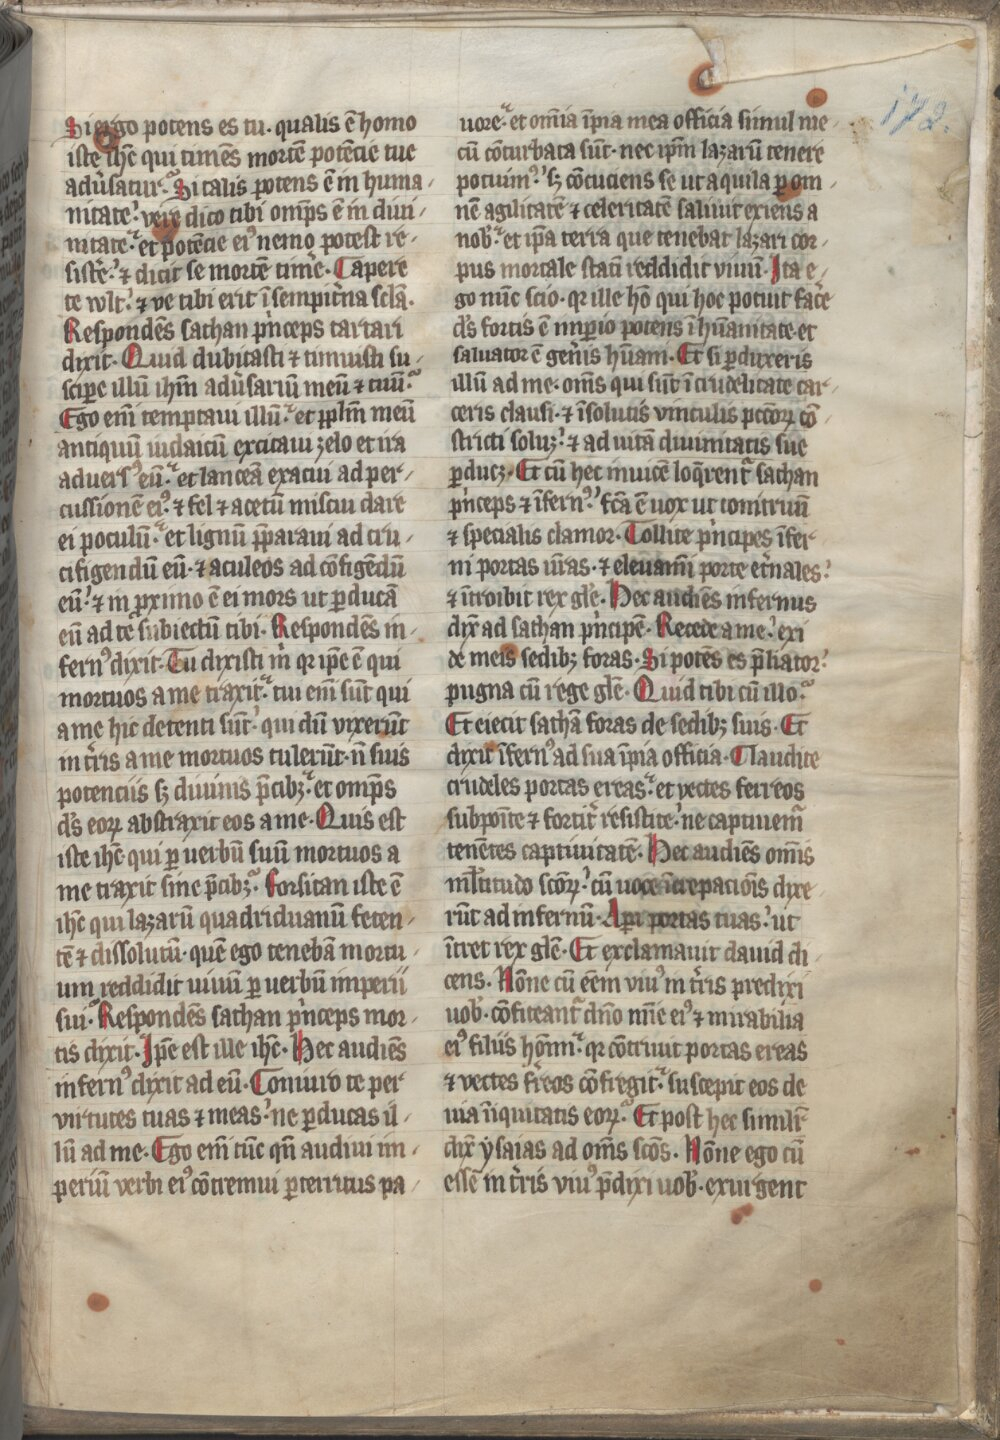 172.
Si ergo potens es tu. qualis ē homo
iste ihē qui timēs mortē potēcie tue
adũsatur. Si talis potens ē in huma
nitate. vere dico tibi omp̄s ē in diui
nitate. et potēcie eiꝰ nemo potest re
sistẽ. ⁊ dicit se mortē timẽ. Capere
te vult. ⁊ ve tibi erit ī sempitẽna sc̄la.
Respondēs sathan p̍nceps tartari
dixit. Quid dubitasti ⁊ timuisti su
scip̱e illū ihm̄ adũsariū meū ⁊ tuū.
Ego em̄ temptaui illū. et pp̄lm̄ meū
antiquū iudaicū excitaui zelo et ira
aduersꝰ eū. et lanceā exacui ad per
cussionē eiꝰ. ⁊ fel ⁊ acetū miscui dare
ei poculū. et lignū p̄paraui ad cru
cifigendū eū. ⁊ aculeos ad cōfigēdū
eū. ⁊ in ꝓximo ē ei mors ut ꝑducā
eū ad te subiectū tibi. Respondēs in
fernꝰ dixit. Tu dixisti m̍ qr ip̄e ē qui
mortuos a me traxit. tui em̄ sūt qui
a me hic detenti sūt. qui dū vixerūt
in tẽris a me mortuos tulerūt. n̄ suis
potenciis sꝫ diuinis p̄cibꝫ. et omp̄s
ds̄ eoꝝ abstraxit eos a me. Quis est
iste ihē qui ꝑ uerbū suū mortuos a
me traxit sine p̄cibꝫ. Forsitan iste ē
ihē qui lazarū quadriduanū feten
tē ⁊ dissolutū. quē ego tenebā mortu
um reddidit uiuū ꝑ uerbū imperii
sui. Respondēs sathan p̍nceps mor
tis dixit. Ip̄e est ille ihē. Hec audiēs
infernꝰ dixit ad eū. Coniuro te per
virtutes tuas ⁊ meas. ne ꝑducas il
lū ad me. Ego em̄ tūc qn̄ audiui im
periū verbi eiꝰ cōtremui ꝑterritus pa
uore. et om̄ia īpia mea officia simul me
cū cōturbata sūt. nec ip̄m lazarū tenere
potuimꝰ. sꝫ cōcuciens se ut aquila ꝑ om
nē agilitatē ⁊ celeritatē saliuit exiens a
nob̍. et ip̄a terra que tenebat lazari cor
pus mortale statī reddidit viuū. Ita e
go nūc scio. qr ille hō qui hoc potuit facẽ
ds̄ fortis ē imꝑio potens ī hūanitate. et
saluator ē genẽis hūani. Et si ꝑduxeris
illū ad me. om̄s qui sūt ī crudelitate car
ceris clausi. ⁊ īsolutis vinculis pccōꝝ cō
stricti soluꝫ. ⁊ ad uitā diuinitatis sue
ꝑducꝫ. Et cū hec inuicē loq̄rent᷑ sathan
p̍nceps ⁊ īfernꝰ. fc̄a ē uox ut tonitruū
⁊ specialis clamor. Tollite p̍ncipes īfer
ni portas ūras. ⁊ eleuam̄i porte etẽnales.
⁊ ītroibit rex gl̄e. Hec audiēs infernus
dix̄ ad sathan p̍ncipē. Recede a me. exi
de meis sedibꝫ foras. Si potēs es p̄liator.
pugna cū rege gl̄e. Quid tibi cū illo.
Et eiecit sathā foras de sedibꝫ suis. Et
dixit īfernꝰ ad sua īpia officia. Claudite
crudeles portas ereas. et vectes ferreos
subpoīte ⁊ fortit᷑ resistite. ne captiuem᷑
tenētes captiuitatē. Hec audiēs omīs
ml̄titudo sc̄oꝝ. cū uoce īcrepaciōis dixe
rūt ad infernū. Aꝑi portas tuas. ut
ītret rex gl̄e. Et exclamauit dauid di
cens. Nōne cū eēm viuꝰ in tẽris predixi
uob̍. cōfiteant᷑ dn̄o mīe eiꝰ ⁊ mirabilia
eiꝰ filiis hoīm. qr cōtriuit portas ereas
⁊ vectes fẽreos cōfregit. suscepit eos de
uia īiquitatis eoꝝ. Et post hec simili᷑
dix̄ ysaias ad om̄s sc̄os. Nōne ego cū
essē in tẽris viuꝰ p̄dixi uob̍. exurgent